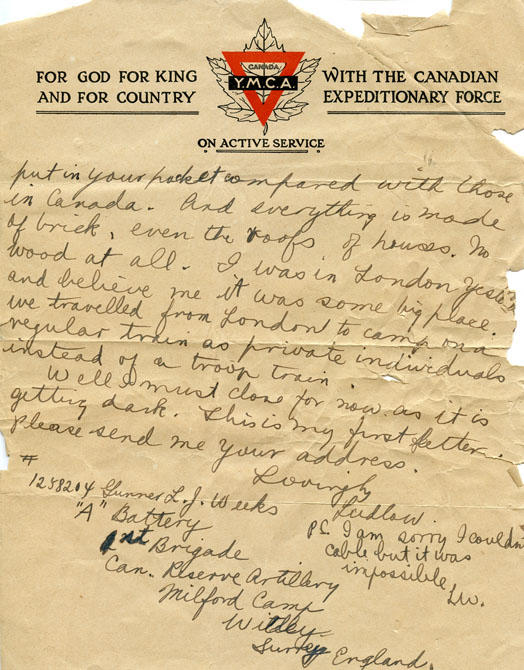 FOR GOD FOR KING
AND FOR COUNTRY
CANADA
Y.M.C.A.
WITH THE CANADIAN
EXPEDITIONARY FORCE
ON ACTIVE SERVICE
put in your pocket compared with those
in Canada. And everything is made
of brick, even the roofs of houses. No
wood at all. I was in London
and believe me it was some big place.
we travelled from London to camp on a
regular train as private individuals
instead of a troop train.
Well I must close for now as it is
getting dark. This is my first letter.
Please send me your address.
Lovingly
Ludlow.
#
1258204 Gunner L. J. Weeks
"A" Battery
1st Brigade
Can. Reserve Artillery
Milford Camp
Witley
Surrey
England.
PS. I am sorry I couldn
cable but it was
impossible
LW.